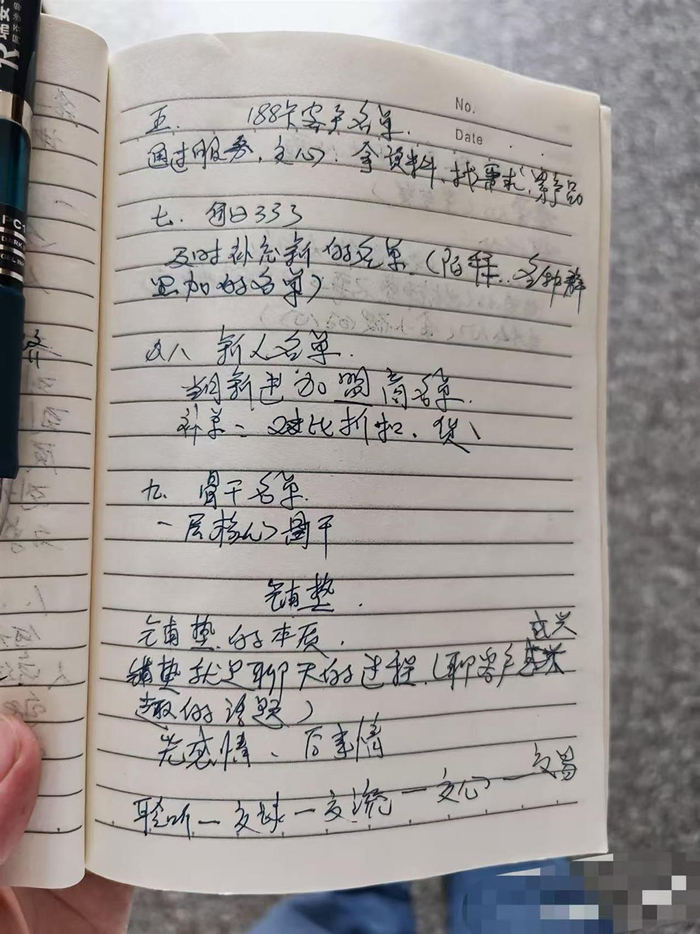 No.
Date
五. 188个客户名单.
通过服务,交心,拿资料,找需求,筛产品
七. 每日333
及时补充新的名单.(陌拜..各种群
添加的名单)
八 新人名单.
当月新进加盟商名单.
计单:对比折扣.货
九. 骨干名单.
一层核心骨干
铺垫.
铺垫的本质.
感兴
铺垫就是聊天的过程.(聊客户
趣的话题)
先感情、后事情
聆听一交球一交流一交心一交易